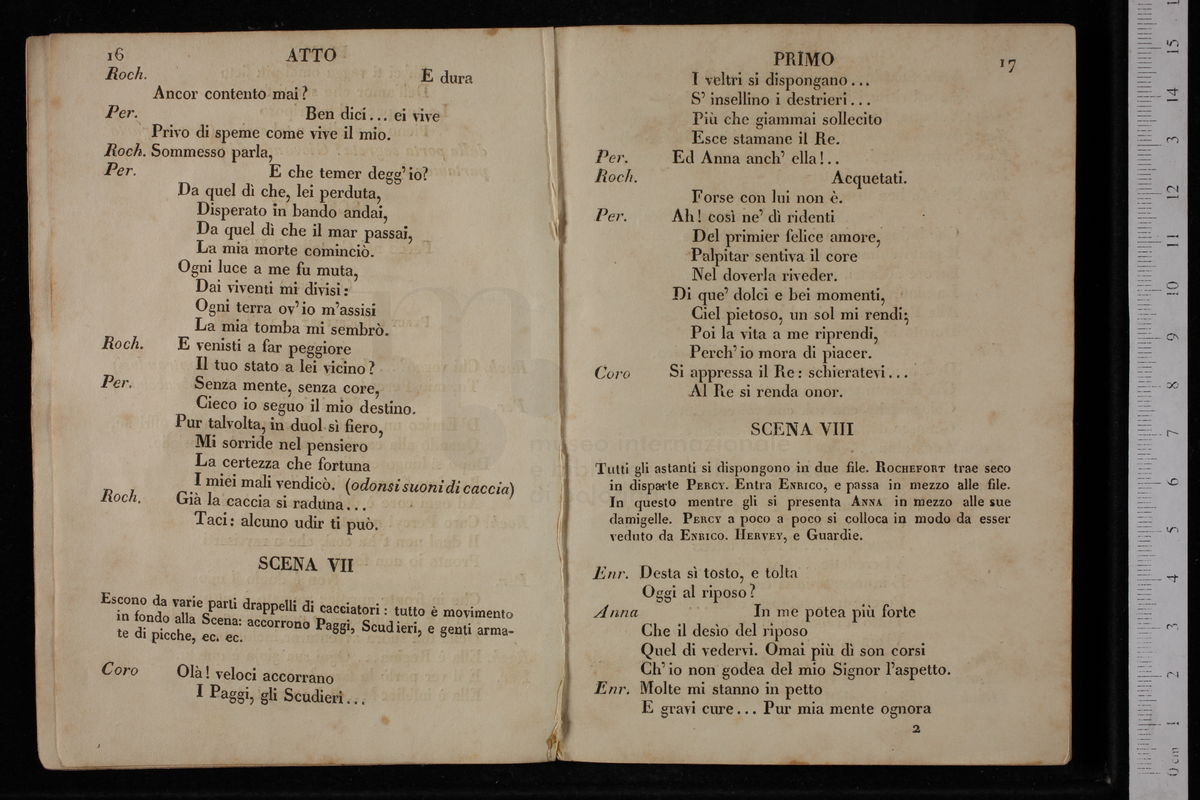 16
ATTO
Roch. E dura
Ancor contento mai?
Per. Ben dici... ei vive
Privo di speme come vive il mio.
Roch. Sommesso parla,
Per. E che temer degg' io?
Da quel dì che, lei perduta,
Disperato in bando andai,
Da quel dì che il mar passai,
La mia morte cominciò.
Ogni luce a me fu muta,
Dai viventi mi divisi:
Ogni terra ov' io m'assisi
La mia tomba mi sembrò.
Roch. E venisti a far peggiore
Il tuo stato a lei vicino?
Per. Senza mente, senza core,
Cieco io seguo il mio destino.
Pur talvolta, in duol sì fiero,
Mi sorride nel pensiero
La certezza che fortuna
I miei mali vendicò. (odonsi suoni di caccia)
Roch. Già la caccia si raduna...
Taci: alcuno udir ti può.
SCENA VII
Escono da varie parti drappelli di cacciatori: tutto è movimento
in fondo alla Scena: accorrono Paggi, Scudieri, e genti arma-
te di picche, ec. ec.
Coro Olà! veloci accorrano
I Paggi, gli Scudieri...
PRIMO
17
I veltri si dispongano...
S' insellino i destrieri...
Più che giammai sollecito
Esce stamane il Re.
Per. Ed Anna anch' ella!..
Roch. Acquetati.
Forse con lui non è.
Per. Ah! così ne' dì ridenti
Del primier felice amore,
Palpitar sentiva il core
Nel doverla riveder.
Di que' dolci e bei momenti,
Ciel pietoso, un sol mi rendi;
Poi la vita a me riprendi,
Perch' io mora di piacer.
Coro Si appressa il Re: schieratevi...
Al Re si renda onor.
SCENA VIII
Tutti gli astanti si dispongono in due file. ROCHEFORT trae seco
in disparte PERCY. Entra ENRICO, e passa in mezzo alle file.
In questo mentre gli si presenta ANNA in mezzo alle sue
damigelle. PERCY a poco a poco si colloca in modo da esser
veduto da ENRICO. HERVEY, e Guardie.
Enr. Desta sì tosto, e tolta
Oggi al riposo?
Anna In me potea più forte
Che il desìo del riposo
Quel di vedervi. Omai più dì son corsi
Ch' io non godea del mio Signor l'aspetto.
Enr. Molte mi stanno in petto
E gravi cure... Pur mia mente ognora
2